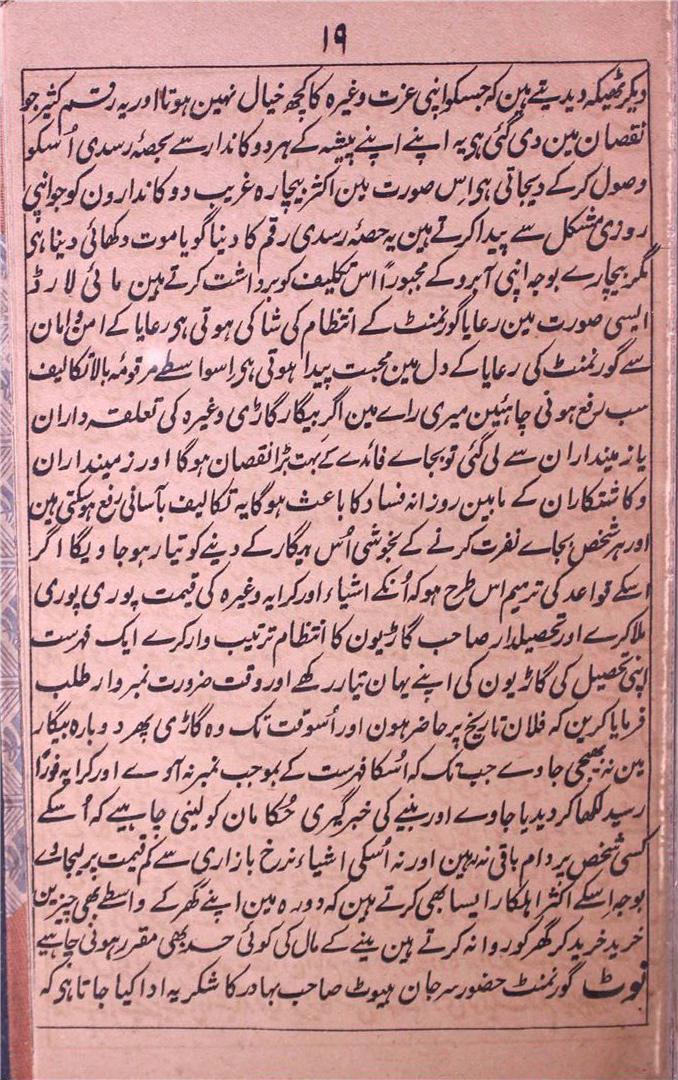 ۱۹
دیکر ٹھیکہ دیدیتے ہین کہ جسکو اپنی عزت وغیرہ کا کچھ خیال نہین ہوتا اور یہ رقم کثیر جو
نقصان مین دی گئی ہی یہ اپنے اپنے پیشہ کے ہر دوکاندار سے بحصۂ رسدی اُسکو
وصول کرکے دیجاتی ہی اِس صورت مین اکثر بیچارہ غریب دوکاندارون کو جو اپنی
روزی مشکل سے پیدا کرتے ہین یہ حصۂ رسدی رقم کا دینا گویا موت دکھائی دینا ہی
مگر بیچارے بوجہ اپنی آبرو کے مجبوراً اس تکلیف کو برداشت کرتے ہین مائی لارڈ
ایسی صورت مین رعایا گورنمنٹ کے انتظام کی شاکی ہوتی ہی رعایا کے امن و امان
سے گورنمنٹ کی رعایا کے دل مین محبت پیدا ہوتی ہی اسواسطے مرقومۂ بالا تکالیف
سب رفع ہونی چاہئین میری راے مین اگر بیگار گاڑی وغیرہ کی تعلقہ داران
یا زمینداران سے لی گئی تو بجاے فائدے کے بہت بڑا نقصان ہوگا اور زمینداران
و کاشتکاران کے مابین روزانہ فساد کا باعث ہوگا یہ تکالیف بآسانی رفع ہوسکتی ہین
اور ہر شخص بجاے نفرت کرنے کے بخوشی اُس بیگار کے دینے کو تیار ہوجاویگا اگر
اسکے قواعد کی ترمیم اس طرح ہو کہ اُنکے اشیاء اور کرایہ وغیرہ کی قیمت پوری پوری
ملا کرے اور تحصیلدار صاحب گاڑیون کا انتظام ترتیب وار کرے ایک فہرست
اپنی تحصیل کی گاڑیون کی اپنے یہان تیار رکھے اور وقت ضرورت نمبروار طلب
فرمایا کرین کہ فلان تاریخ پر حاضر ہون اور اُسوقت تک وہ گاڑی پھر دوبارہ بیگار
مین نہ بھیجی جاوے جب تک کہ اُسکا فہرست کے بموجب نمبر نہ آوے اور کرایہ فوراً
رسید لکھا کر دیدیا جاوے اور بنیے کی خبرگیری حُکامان کو لینی چاہیے کہ اُسکے
کسی شخص پر دام باقی نہ رہین اور نہ اُسکی اشیاء نرخ بازاری سے کم قیمت پر لیجاوے
بوجہ اِسکے اکثر اہلکار ایسا بھی کرتے ہین کہ دورہ مین اپنے گھر کے واسطے بھی چیزین
خرید خرید کر گھر کو روانہ کرتے ہین بنیے کے مال کی کوئی حد بھی مقرر ہونی چاہیے
نوٹ گورنمنٹ حضور سر جان ہیوٹ صاحب بہادر کا شکریہ ادا کیا جاتا ہی کہ